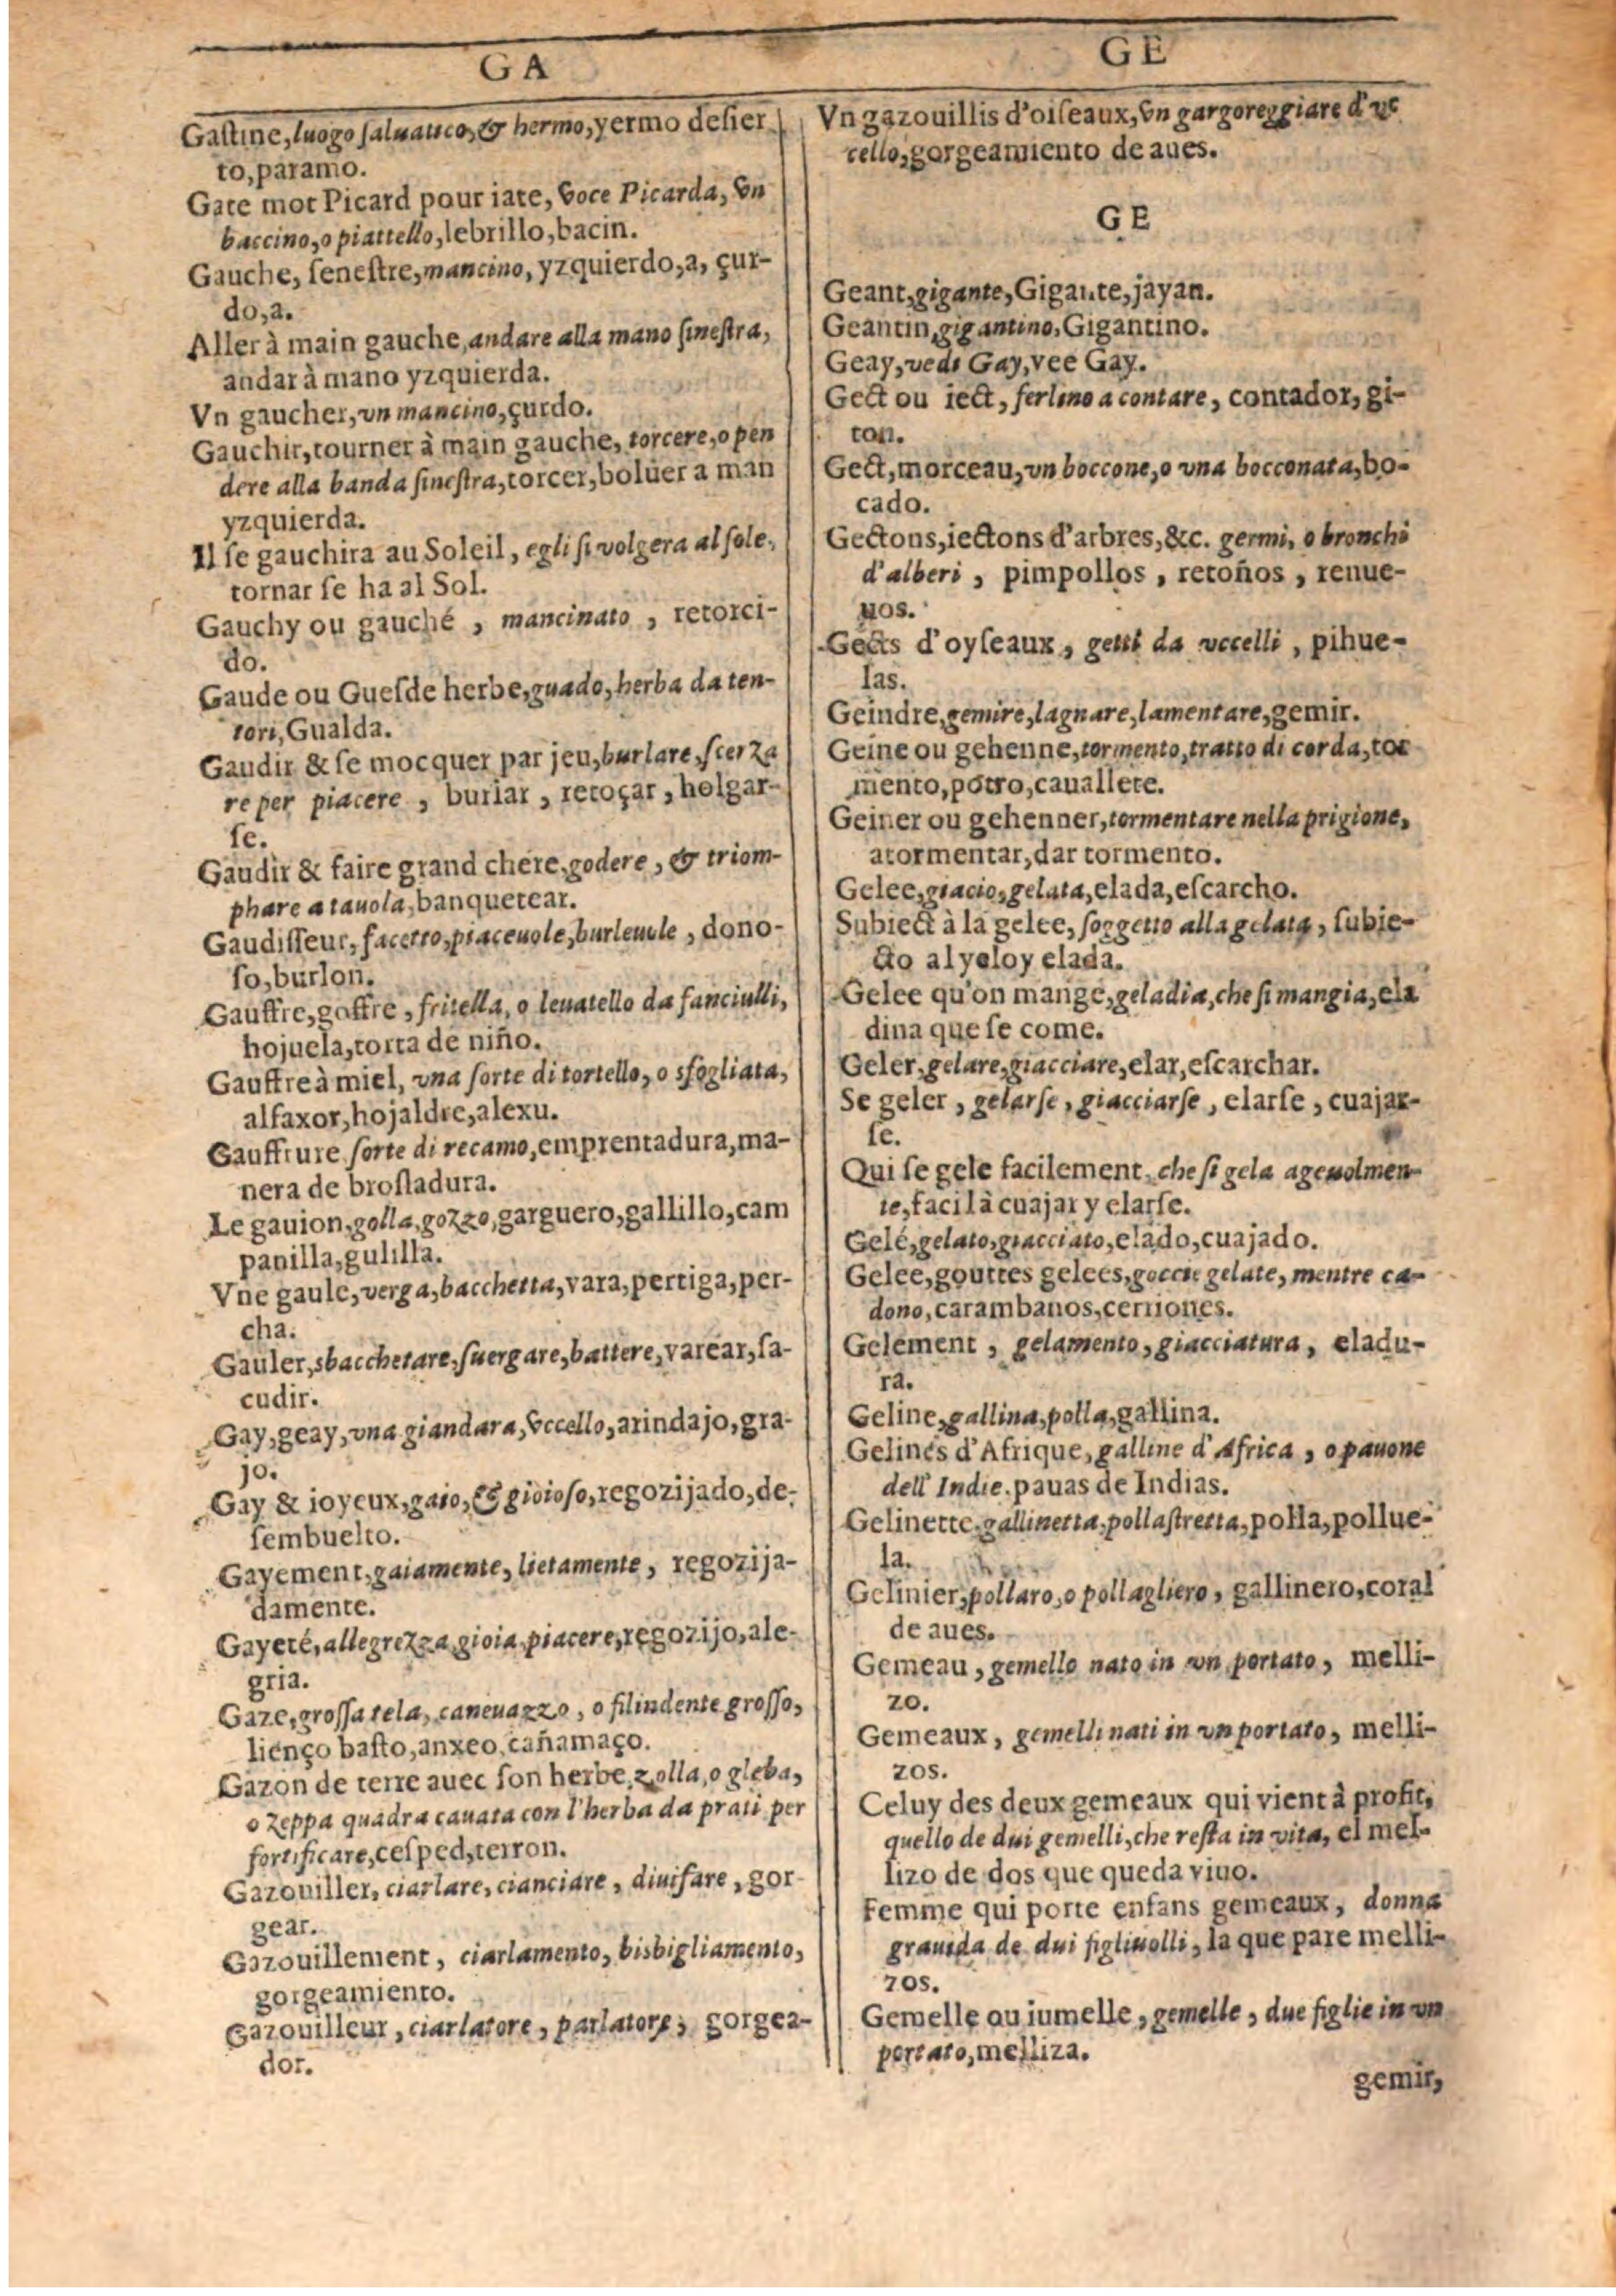 GA
Gaſtine, luogo ſaluatico, & hermo, yermo deſier
to, paramo.
Gate mot Picard pour iate, voce Picarda, vn
baccino, o piattello, lebrillo, bacin.
Gauche, ſeneſtre, mancino, yzquierdo, a, çur-
do, a.
Aller à main gauche, andare alla mano ſineſtra,
andar à mano yzquierda.
Vn gaucher, vn mancino, çurdo.
Gauchir, tourner à main gauche, torcere, o pen
dere alla banda ſineſtra, torcer, boluer a man
yzquierda.
Il ſe gauchira au Soleil, egli ſi volgera al ſole,
tornar ſe ha al Sol.
Gauchy ou gauché, mancinato, retorci-
do.
Gaude ou Gueſde herbe, guado, herba da ten-
tori, Gualda.
Gaudir & ſe mocquer par jeu, burlare, ſcerza
re per piacere, burlar, retoçar, holgar-
ſe.
Gaudir & faire grand chere, godere, & triom-
phare a tauola, banquetear.
Gaudiſſeur, facetto, piaceuole, burleuole, dono-
ſo, burlon.
Gauffre, goffre, fritella, o leuatello da fanciulli,
hojuela, torta de niño.
Gauffre à miel, vna ſorte di tortello, o sfogliata,
alfaxor, hojaldre, alexu.
Gauffrure ſorte di recamo, emprentadura, ma-
nera de broſladura.
Le gauion, golla, gozzo, garguero, gallillo, cam
panilla, gulilla.
Vne gaule, verga, bacchetta, vara, pertiga, per-
cha.
Gauler, sbacchetare, ſuergare, battere, varear, ſa-
cudir.
Gay, geay, vna giandara, vccello, arindajo, gra-
jo.
Gay & ioyeux, gaio, & gioioſo, regozijado, de-
ſembuelto.
Gayement, gaiamente, lietamente, regozija-
damente.
Gayeté, allegrezza, gioia, piacere, regozijo, ale-
gria.
Gaze, groſſa tela, caneuazzo, o filindente groſſo,
lienço baſto, anxeo, cañamaço.
Gazon de terre auec ſon herbe, zolla, o gleba,
o zeppa quadra cauata con l'herba da prati per
fortificare, ceſped, terron.
Gazouiller, ciarlare, cianciare, diuiſare, gor
gear.
Gazouillement, ciarlamento, bisbigliamento,
gorgeamiento.
Gazouilleur, ciarlatore, parlatore, gorgea-
dor.
GE
Vn gazouillis d'oiſeaux, vn gargoreggiare d'vc
cello, gorgeamiento de aues.
GE
Geant, gigante, Gigante, jayan.
Geantin, gigantino, Gigantino.
Geay, vedi Gay, vee Gay.
Gect ou iect, ferlino a contare, contador, gi-
ton.
Gect, morceau, vn boccone, o vna bocconata, bo-
cado.
Gectons, iectons d'arbres, &c. germi, o bronchi
d'alberi, pimpollos, retoños, renue-
uos.
Gects d'oyſeaux, getti da vccelli, pihue-
las.
Geindre, gemire, lagnare, lamentare, gemir.
Geine ou gehenne, tormento, tratto di corda, tor
mento, potro, cauallete.
Geiner ou gehenner, tormentare nella prigione,
atormentar, dar tormento.
Gelee, giacio, gelata, elada, eſcarcho.
Subiect à la gelee, ſoggetto alla gelata, ſubie-
cto al yelo y elada.
Gelee qu'on mange, geladia, che ſi mangia, ela
dina que ſe come.
Geler, gelare, giacciare, elar, eſcarchar.
Se geler, gelarſe, giacciarſe, elarſe, cuajar-
ſe.
Qui ſe gele facilement, che ſi gela ageuolmen-
te, facil à cuajar y elarſe.
Gelé, gelato, giacciato, elado, cuajado.
Gelee, gouttes gelees, goccie gelate, mentre ca-
dono, carambanos, cerriones.
Gelement, gelamento, giacciatura, eladu-
ra.
Geline, gallina, polla, gallina.
Gelines d'Afrique, galline d'Africa, o pauone
dell' Indie. pauas de Indias.
Gelinette, gallinetta, pollaſtretta, polla, pollue-
la.
Gelinier, pollaro, o pollagliero, gallinero, coral
de aues.
Gemeau, gemello nato in vn portato, melli-
zo.
Gemeaux, gemelli nati in vn portato, melli-
zos.
Celuy des deux gemeaux qui vient à profit,
quello de dui gemelli, che reſta in vita, el mel-
lizo de dos que queda viuo.
Femme qui porte enfans gemeaux, donna
grauida de dui figliuolli, la que pare melli-
zos.
Gemelle ou iumelle, gemelle, due figlie in vn
portato, melliza.
gemir,